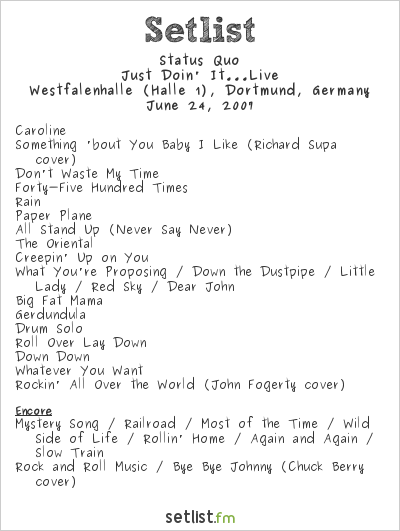 Setlist
Status Quo
Just Doin' It...Live
Westfalenhalle (Halle 1), Dortmund, Germany
June 24, 2009
Caroline
Something 'bout You Baby I Like (Richard Supa
cover)
Don't Waste My Time
Forty-Five Hundred Times
Rain
Paper Plane
All Stand Up (Never Say Never)
The Oriental
Creepin' Up on You
What You're Proposing / Down the Dustpipe / Little
Lady / Red Sky / Dear John
Big Fat Mama
Gerdundula
Drum Solo
Roll Over Lay Down
Down Down
Whatever You Want
Rockin' All Over the World (John Fogerty cover)
Encore
Mystery Song / Railroad / Most of the Time / Wild
Side of Life / Rollin' Home / Again and Again /
Slow Train
Rock and Roll Music / Bye Bye Johnny (Chuck Berry
cover)
setlist.fm